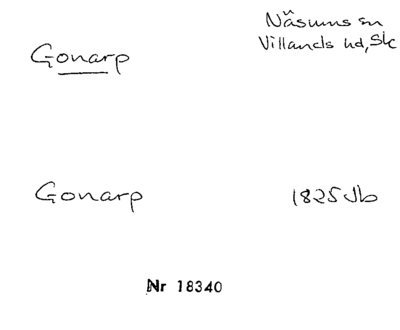 Gonarp
Näsums sn
Villands hd, Sk
Gonarp
1825 Jb
Nr 18340